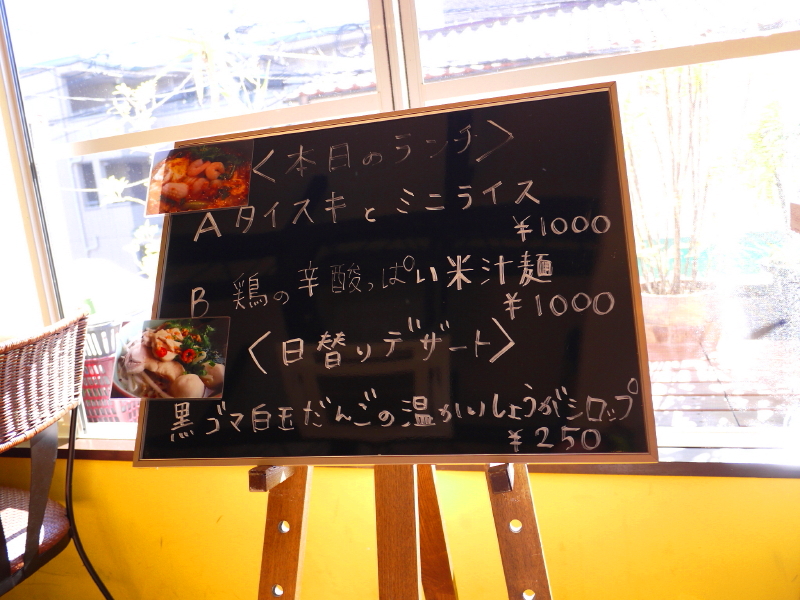 〈本日のランチ〉
A タイスキとミニライス
¥1000
B 鶏の辛酸っぱい米汁麺
¥1000
〈日替りデザート〉
黒ゴマ白玉だんごの温かいしょうがシロップ
¥250